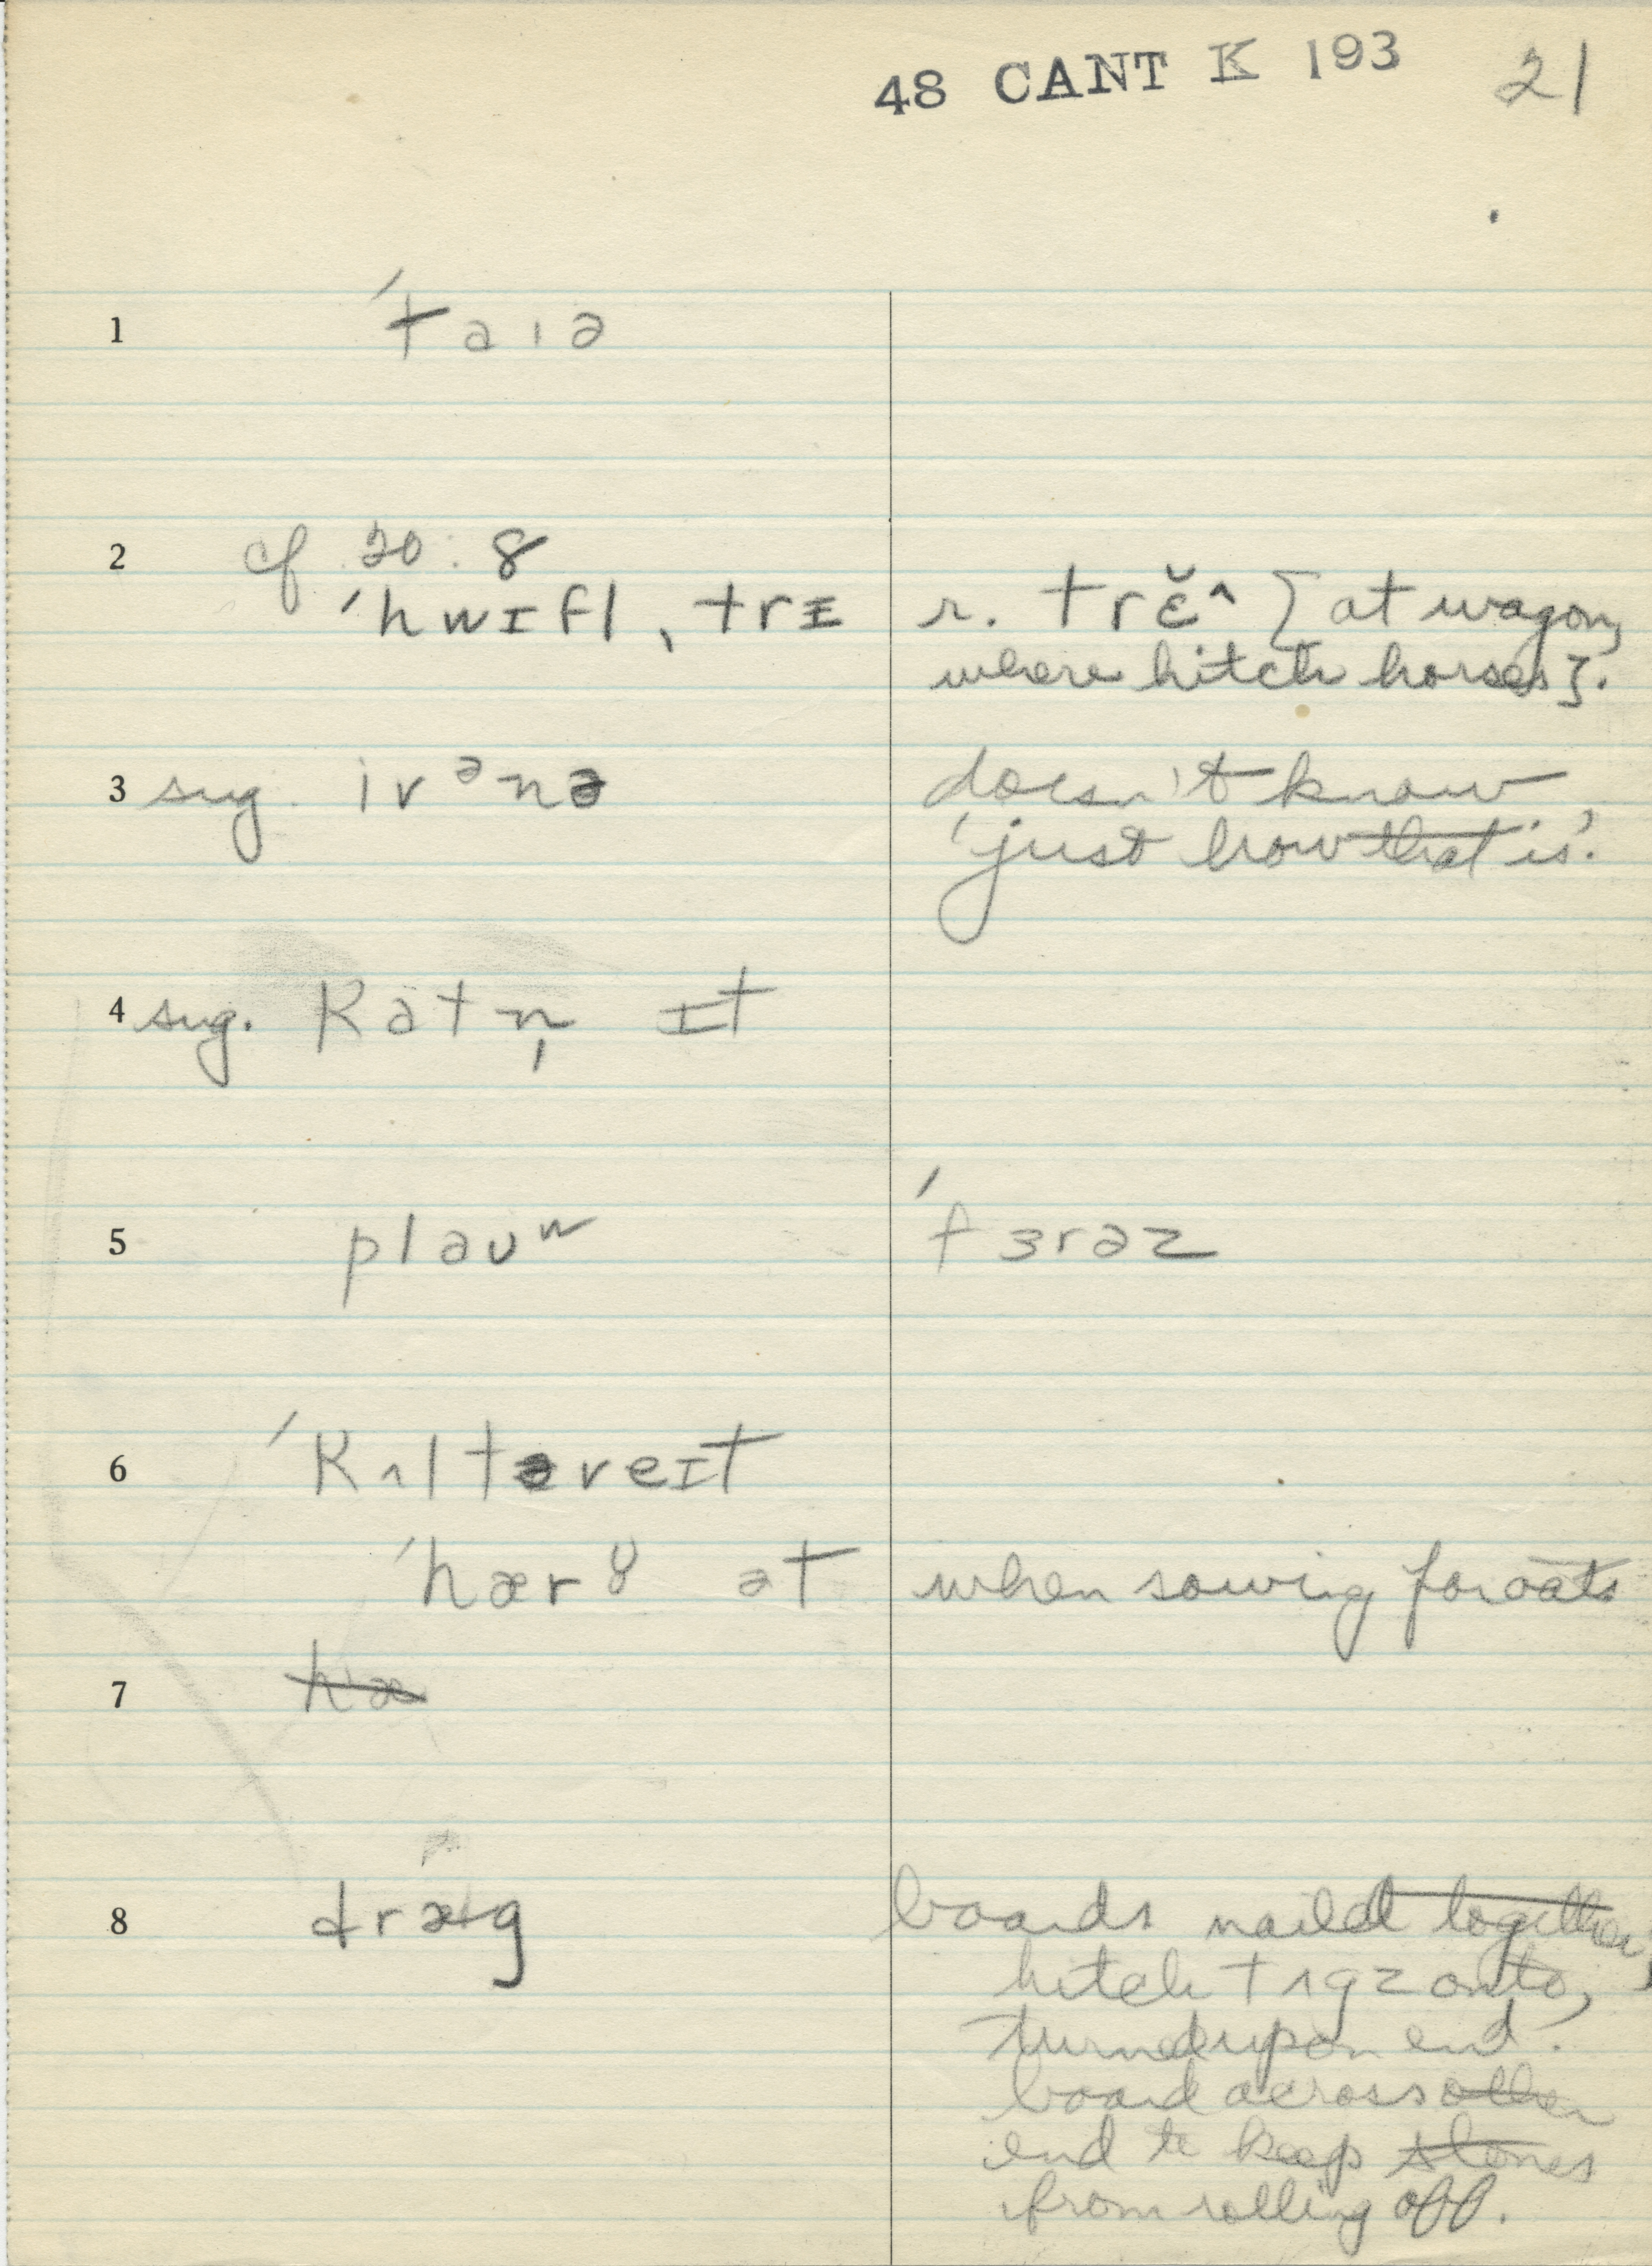 48 CANT K 193 21
1 ˈtaɪə
2 cf 20:8
ˈhwɪfl̩ˌtrɪ r. trɛ̌^ [at wagon,
where hitch horses].
3 sug. ivᵊnə doesn't know
'just how that is'.
4 sug. katn̩ ɪt
5 plaʊʷ ˈfɜrəz
6 ˈkʌltəveɪt
ˈhærɤ ət when sowing for oats
7 hæ
8 dræg boards nailed together,
hitch tʌgz onto,
turned up on end.
board across other
end to keep stones
from rolling off.